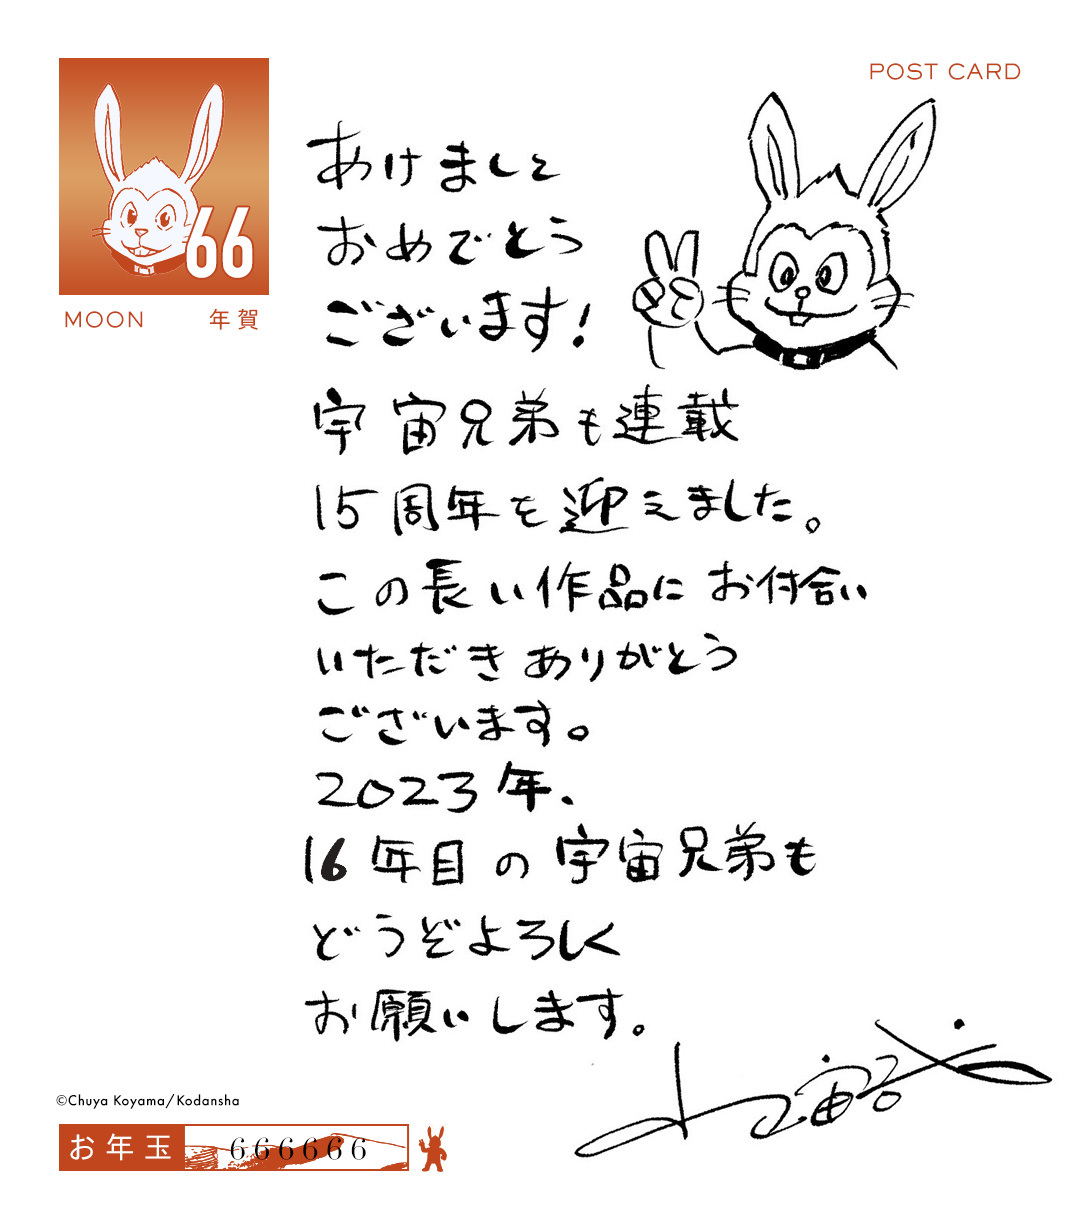 POST CARD
66
MOON 年賀
あけまして
おめでとう
ございます!
宇宙兄弟も連載
15周年を迎えました。
この長い作品にお付合い
いただきありがとう
ございます。
2023年、
16年目の宇宙兄弟も
どうぞよろしく
お願いします。
小山宙哉
©Chuya Koyama/Kodansha
お年玉 666666